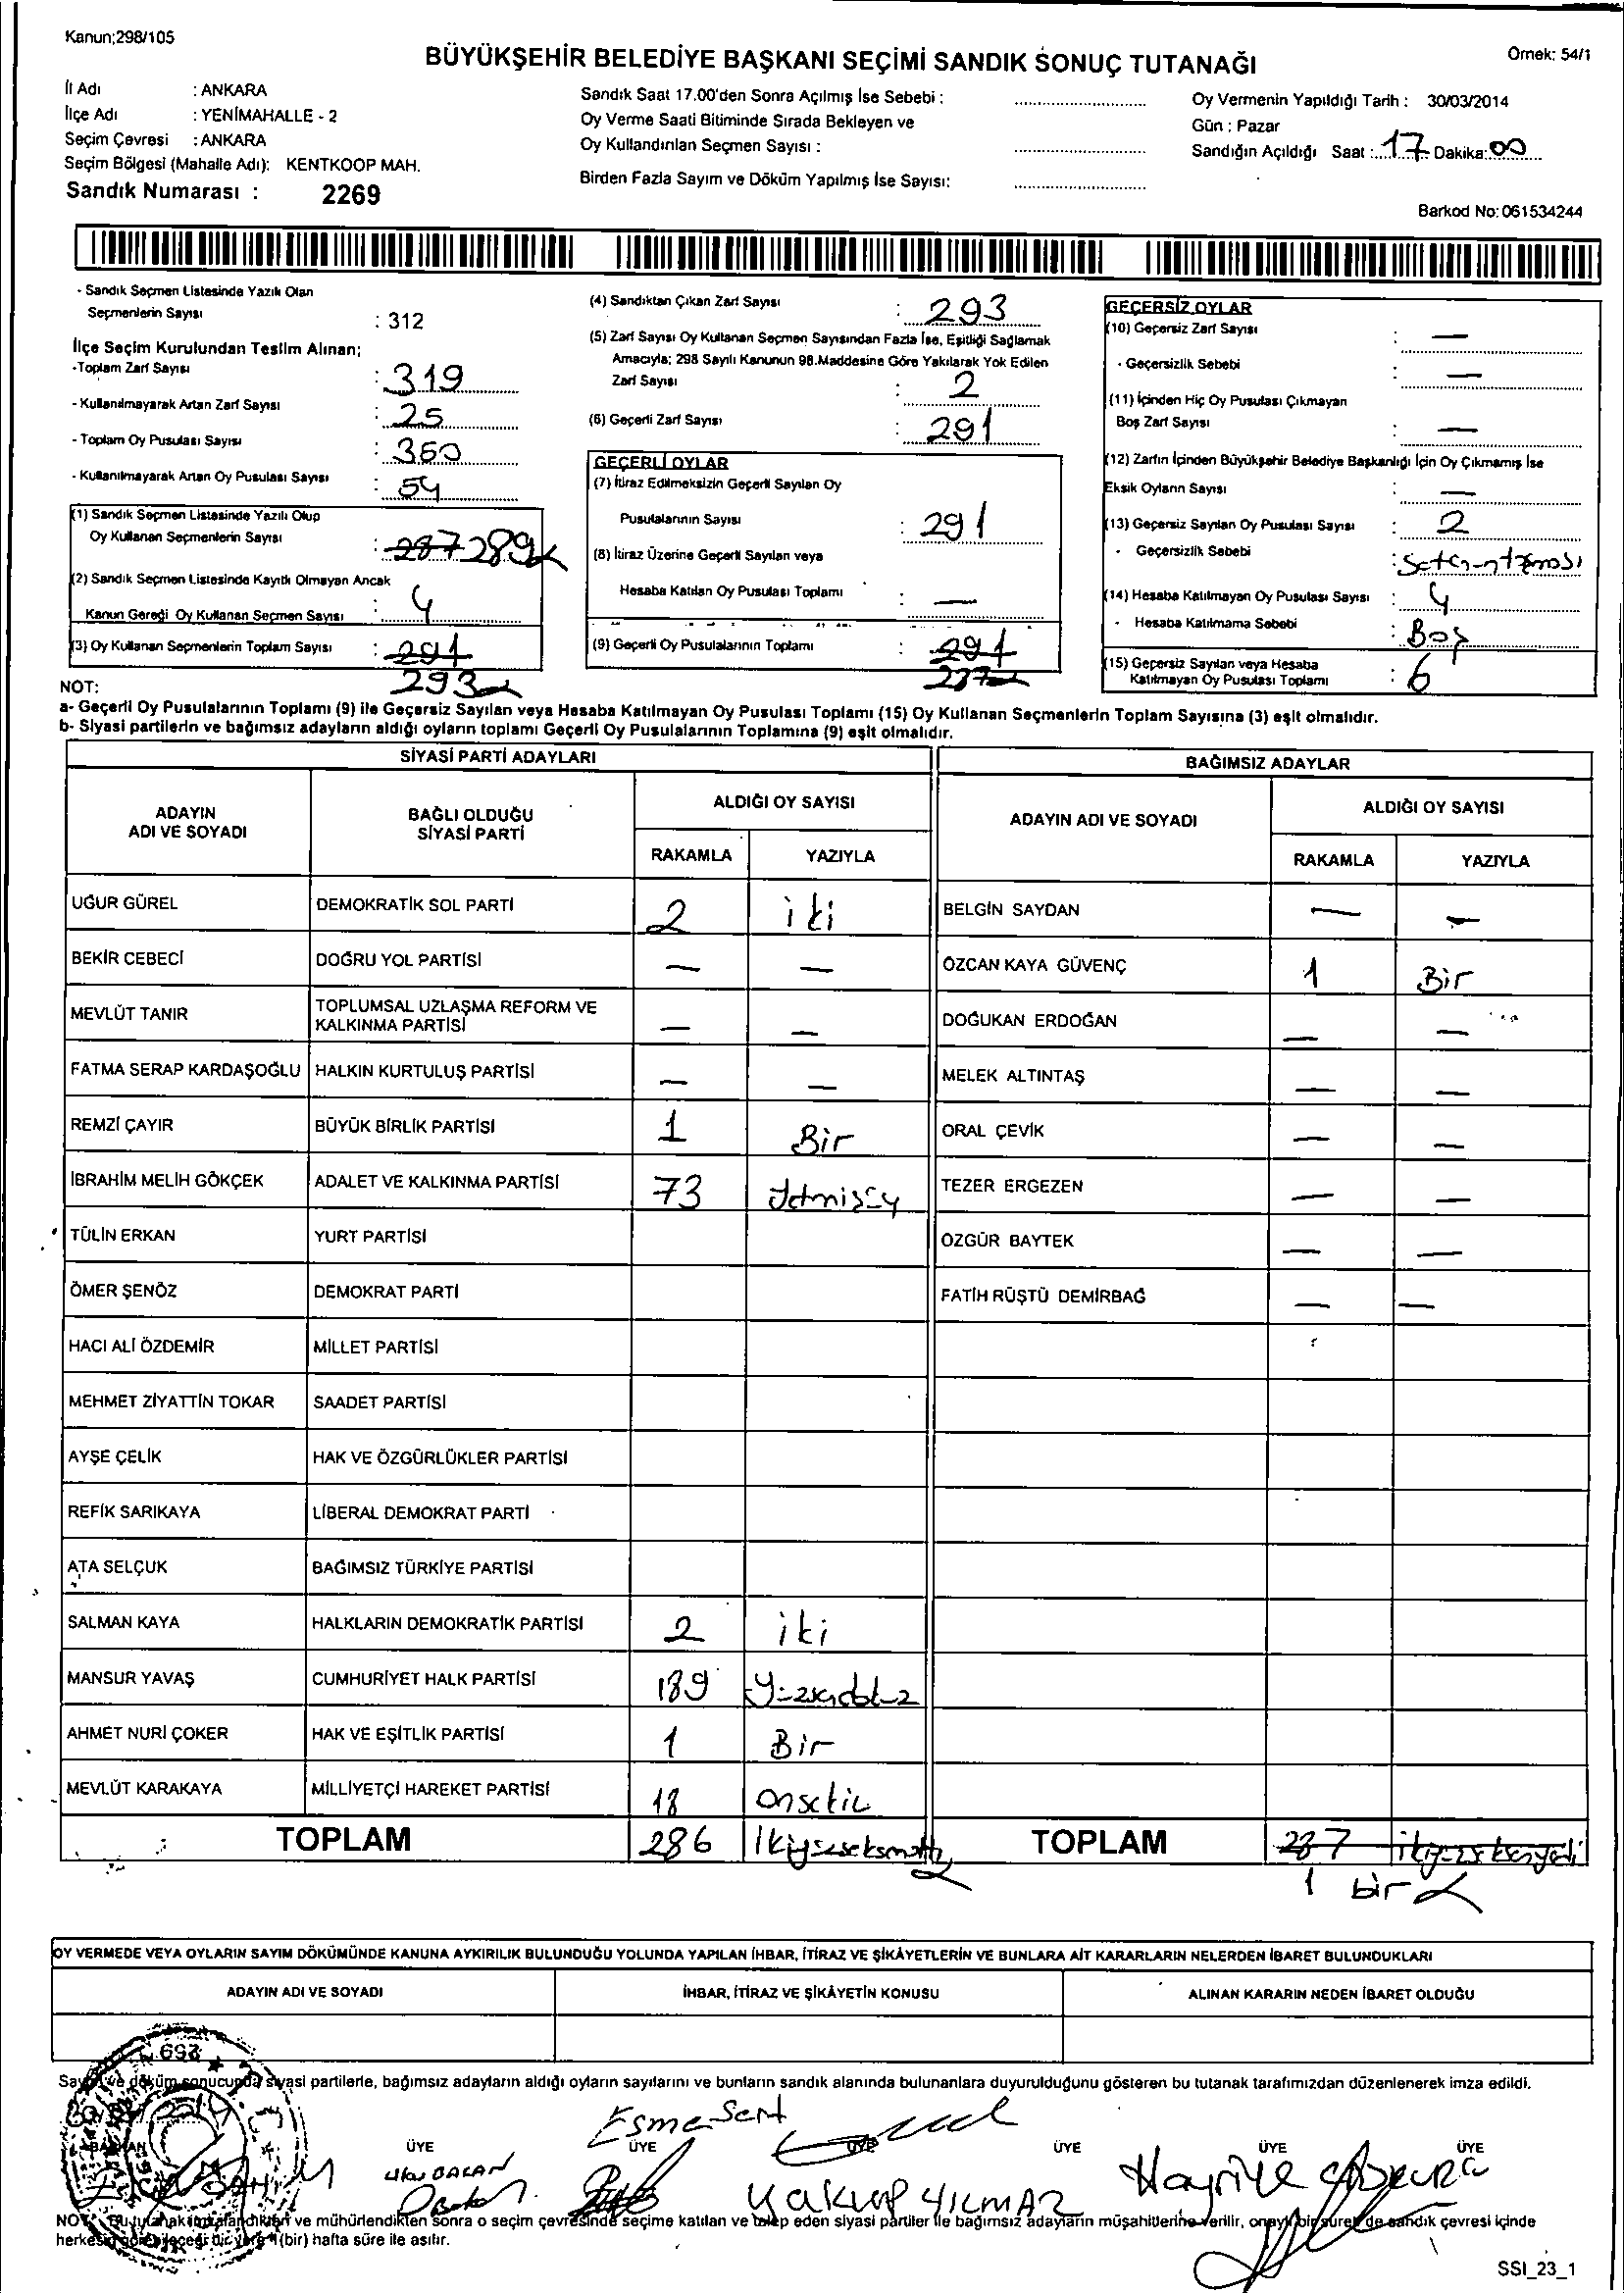 Kanun;298/105
BÜYÜKŞEHİR BELEDİYE BAŞKANI SEÇİMİ SANDIK SONUÇ TUTANAĞI
Örnek: 54/1
İl Adı : ANKARA
İlçe Adı : YENİMAHALLE - 2
Seçim Çevresi : ANKARA
Seçim Bölgesi (Mahalle Adı): KENTKOOP MAH.
Sandık Numarası : 2269
Sandık Saat 17.00'den Sonra Açılmış İse Sebebi :
Oy Verme Saati Bitiminde Sırada Bekleyen ve
Oy Kullandırılan Seçmen Sayısı :
Birden Fazla Sayım ve Döküm Yapılmış İse Sayısı:
Oy Vermenin Yapıldığı Tarih : 30/03/2014
Gün : Pazar
Sandığın Açıldığı Saat : 17 Dakika: 00
Barkod No: 061534244
- Sandık Seçmen Listesinde Yazılı Olan
Seçmenlerin Sayısı : 312
İlçe Seçim Kurulundan Teslim Alınan;
-Toplam Zarf Sayısı : 319
- Kullanılmayarak Artan Zarf Sayısı : 25
- Toplam Oy Pusulası Sayısı : 360
- Kullanılmayarak Artan Oy Pusulası Sayısı : 54
(1) Sandık Seçmen Listesinde Yazılı Olup
Oy Kullanan Seçmenlerin Sayısı : 287 289
(2) Sandık Seçmen Listesinde Kayıtlı Olmayan Ancak
Kanun Gereği Oy Kullanan Seçmen Sayısı : 4
(3) Oy Kullanan Seçmenlerin Toplam Sayısı : 291
293
(4) Sandıktan Çıkan Zarf Sayısı : 293
(5) Zarf Sayısı Oy Kullanan Seçmen Sayısından Fazla İse, Eşitliği Sağlamak
Amacıyla; 298 Sayılı Kanunun 98.Maddesine Göre Yakılarak Yok Edilen
Zarf Sayısı : 2
(6) Geçerli Zarf Sayısı : 291
GEÇERLİ OYLAR
(7) İtiraz Edilmeksizin Geçerli Sayılan Oy
Pusulalarının Sayısı : 291
(8) İtiraz Üzerine Geçerli Sayılan veya
Hesaba Katılan Oy Pusulası Toplamı : —
(9) Geçerli Oy Pusulalarının Toplamı : 291
287
GEÇERSİZ OYLAR
(10) Geçersiz Zarf Sayısı : —
- Geçersizlik Sebebi : —
(11) İçinden Hiç Oy Pusulası Çıkmayan
Boş Zarf Sayısı : —
(12) Zarfın İçinden Büyükşehir Belediye Başkanlığı İçin Oy Çıkmamış İse
Eksik Oyların Sayısı : —
(13) Geçersiz Sayılan Oy Pusulası Sayısı : 2
- Geçersizlik Sebebi :
(14) Hesaba Katılmayan Oy Pusulası Sayısı : 4
- Hesaba Katılmama Sebebi : Boş
(15) Geçersiz Sayılan veya Hesaba
Katılmayan Oy Pusulası Toplamı : 6
NOT:
a- Geçerli Oy Pusulalarının Toplamı (9) ile Geçersiz Sayılan veya Hesaba Katılmayan Oy Pusulası Toplamı (15) Oy Kullanan Seçmenlerin Toplam Sayısına (3) eşit olmalıdır.
b- Siyasi partilerin ve bağımsız adayların aldığı oyların toplamı Geçerli Oy Pusulalarının Toplamına (9) eşit olmalıdır.
SİYASİ PARTİ ADAYLARI
ADAYIN ADI VE SOYADI BAĞLI OLDUĞU SİYASİ PARTİ ALDIĞI OY SAYISI
RAKAMLA YAZIYLA
UĞUR GÜREL DEMOKRATİK SOL PARTİ 2 iki
BEKİR CEBECİ DOĞRU YOL PARTİSİ — —
MEVLÜT TANIR TOPLUMSAL UZLAŞMA REFORM VE KALKINMA PARTİSİ — —
FATMA SERAP KARDAŞOĞLU HALKIN KURTULUŞ PARTİSİ — —
REMZİ ÇAYIR BÜYÜK BİRLİK PARTİSİ 1 Bir
İBRAHİM MELİH GÖKÇEK ADALET VE KALKINMA PARTİSİ 73
TÜLİN ERKAN YURT PARTİSİ
ÖMER ŞENÖZ DEMOKRAT PARTİ
HACI ALİ ÖZDEMİR MİLLET PARTİSİ
MEHMET ZİYATTİN TOKAR SAADET PARTİSİ
AYŞE ÇELİK HAK VE ÖZGÜRLÜKLER PARTİSİ
REFİK SARIKAYA LİBERAL DEMOKRAT PARTİ
ATA SELÇUK BAĞIMSIZ TÜRKİYE PARTİSİ
SALMAN KAYA HALKLARIN DEMOKRATİK PARTİSİ 2 iki
MANSUR YAVAŞ CUMHURİYET HALK PARTİSİ 189
AHMET NURİ ÇOKER HAK VE EŞİTLİK PARTİSİ 1 Bir
MEVLÜT KARAKAYA MİLLİYETÇİ HAREKET PARTİSİ 18 onsekiz
TOPLAM 286
BAĞIMSIZ ADAYLAR
ADAYIN ADI VE SOYADI ALDIĞI OY SAYISI
RAKAMLA YAZIYLA
BELGİN SAYDAN — —
ÖZCAN KAYA GÜVENÇ 1 Bir
DOĞUKAN ERDOĞAN — —
MELEK ALTINTAŞ — —
ORAL ÇEVİK — —
TEZER ERGEZEN — —
ÖZGÜR BAYTEK — —
FATİH RÜŞTÜ DEMİRBAĞ — —
TOPLAM 287
1 bir
OY VERMEDE VEYA OYLARIN SAYIM DÖKÜMÜNDE KANUNA AYKIRILIK BULUNDUĞU YOLUNDA YAPILAN İHBAR, İTİRAZ VE ŞİKÂYETLERİN VE BUNLARA AİT KARARLARIN NELERDEN İBARET BULUNDUKLARI
ADAYIN ADI VE SOYADI İHBAR, İTİRAZ VE ŞİKÂYETİN KONUSU ALINAN KARARIN NEDEN İBARET OLDUĞU
Sayım ve döküm sonucunda siyasi partilerle, bağımsız adayların aldığı oyların sayılarını ve bunların sandık alanında bulunanlara duyurulduğunu gösteren bu tutanak tarafımızdan düzenlenerek imza edildi.
Esma Sert
BAŞKAN ÜYE ÜYE ÜYE ÜYE ÜYE ÜYE
Yakup YILMAZ
NOT: Bu tutanak imzalandıktan ve mühürlendikten sonra o seçim çevresinde seçime katılan ve talep eden siyasi partiler ile bağımsız adayların müşahitlerine verilir, onaylı bir sureti de sandık çevresi içinde
herkesin görebileceği bir yere 1(bir) hafta süre ile asılır.
SSI_23_1